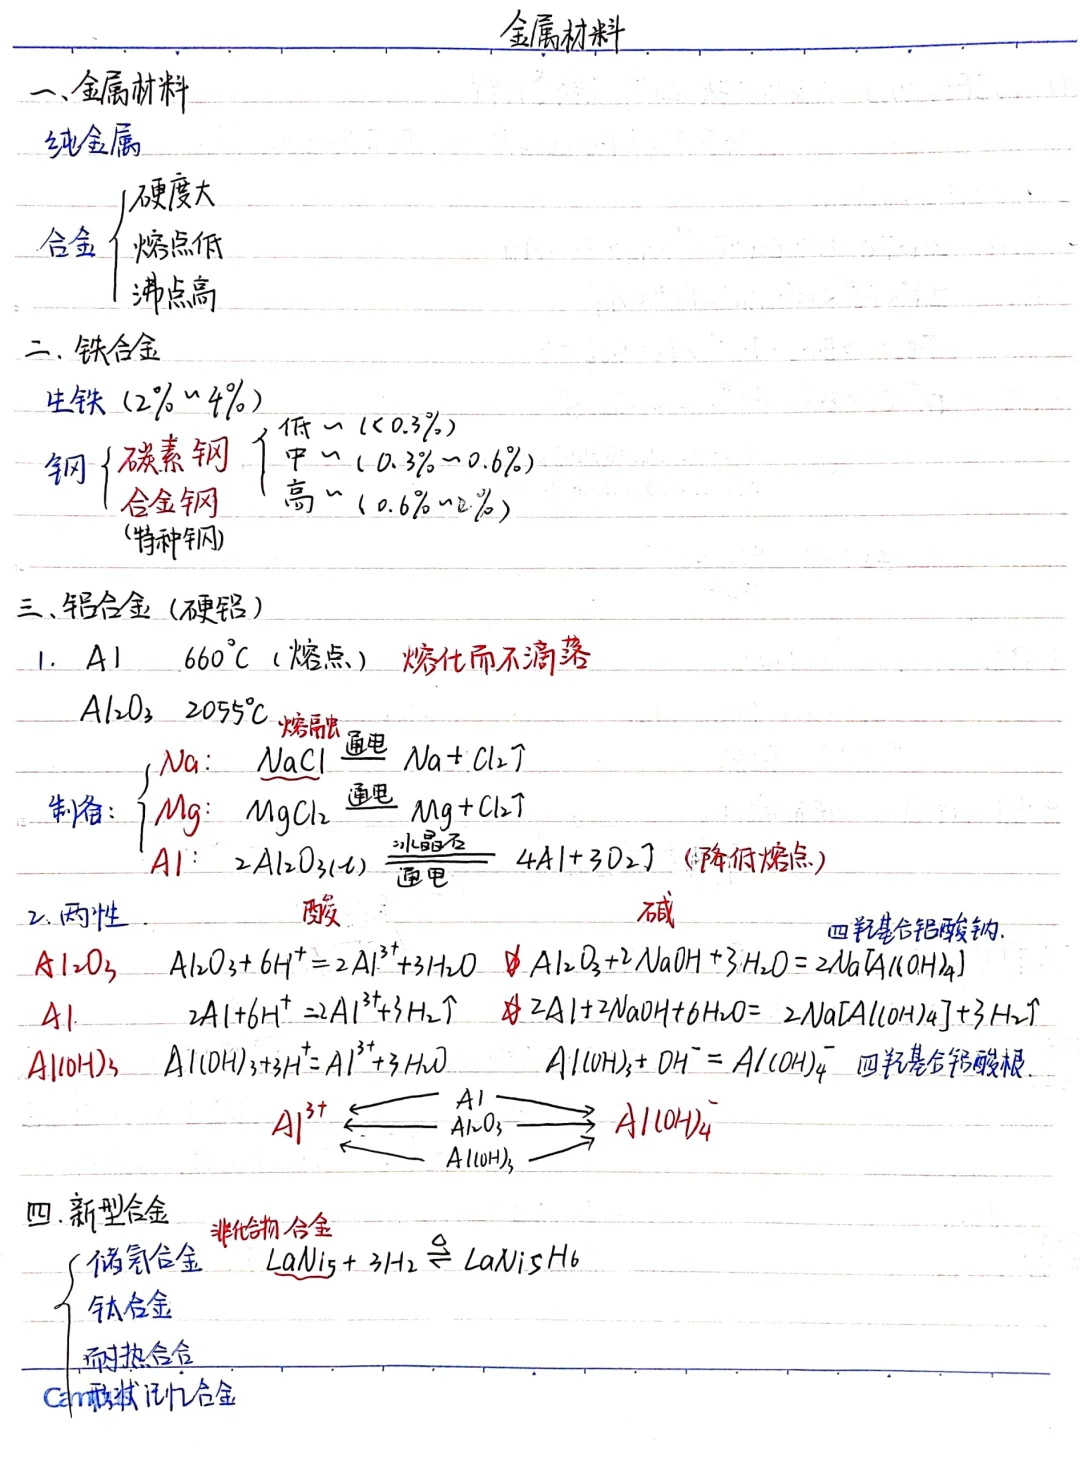 金属材料
一、金属材料
纯金属
合金 { 硬度大
熔点低
沸点高
二、铁合金
生铁 (2%~4%)
钢 { 碳素钢 { 低~ (<0.3%)
中~ (0.3%~0.6%)
合金钢 高~ (0.6%~2%)
(特种钢)
三、铝合金 (硬铝)
1. Al 660℃ (熔点) 熔化而不滴落
Al2O3 2055℃
制备: { Na: 熔融 NaCl 通电 Na + Cl2↑
Mg: MgCl2 通电 Mg + Cl2↑
Al: 2Al2O3(l) 冰晶石 通电 4Al + 3O2↑ (降低熔点)
2. 两性 酸 碱 四羟基合铝酸钠.
Al2O3 Al2O3 + 6H⁺ = 2Al³⁺ + 3H2O Al2O3 + 2NaOH + 3H2O = 2Na[Al(OH)4]
Al 2Al + 6H⁺ = 2Al³⁺ + 3H2↑ 2Al + 2NaOH + 6H2O = 2Na[Al(OH)4] + 3H2↑
Al(OH)3 Al(OH)3 + 3H⁺ = Al³⁺ + 3H2O Al(OH)3 + OH⁻ = Al(OH)4⁻ 四羟基合铝酸根.
Al
Al³⁺ Al2O3 Al(OH)4⁻
Al(OH)3
四. 新型合金
非化合物 合金
储氢合金 LaNi5 + 3H2 △ ⇌ LaNi5H6
钛合金
耐热合合
形状记忆合金